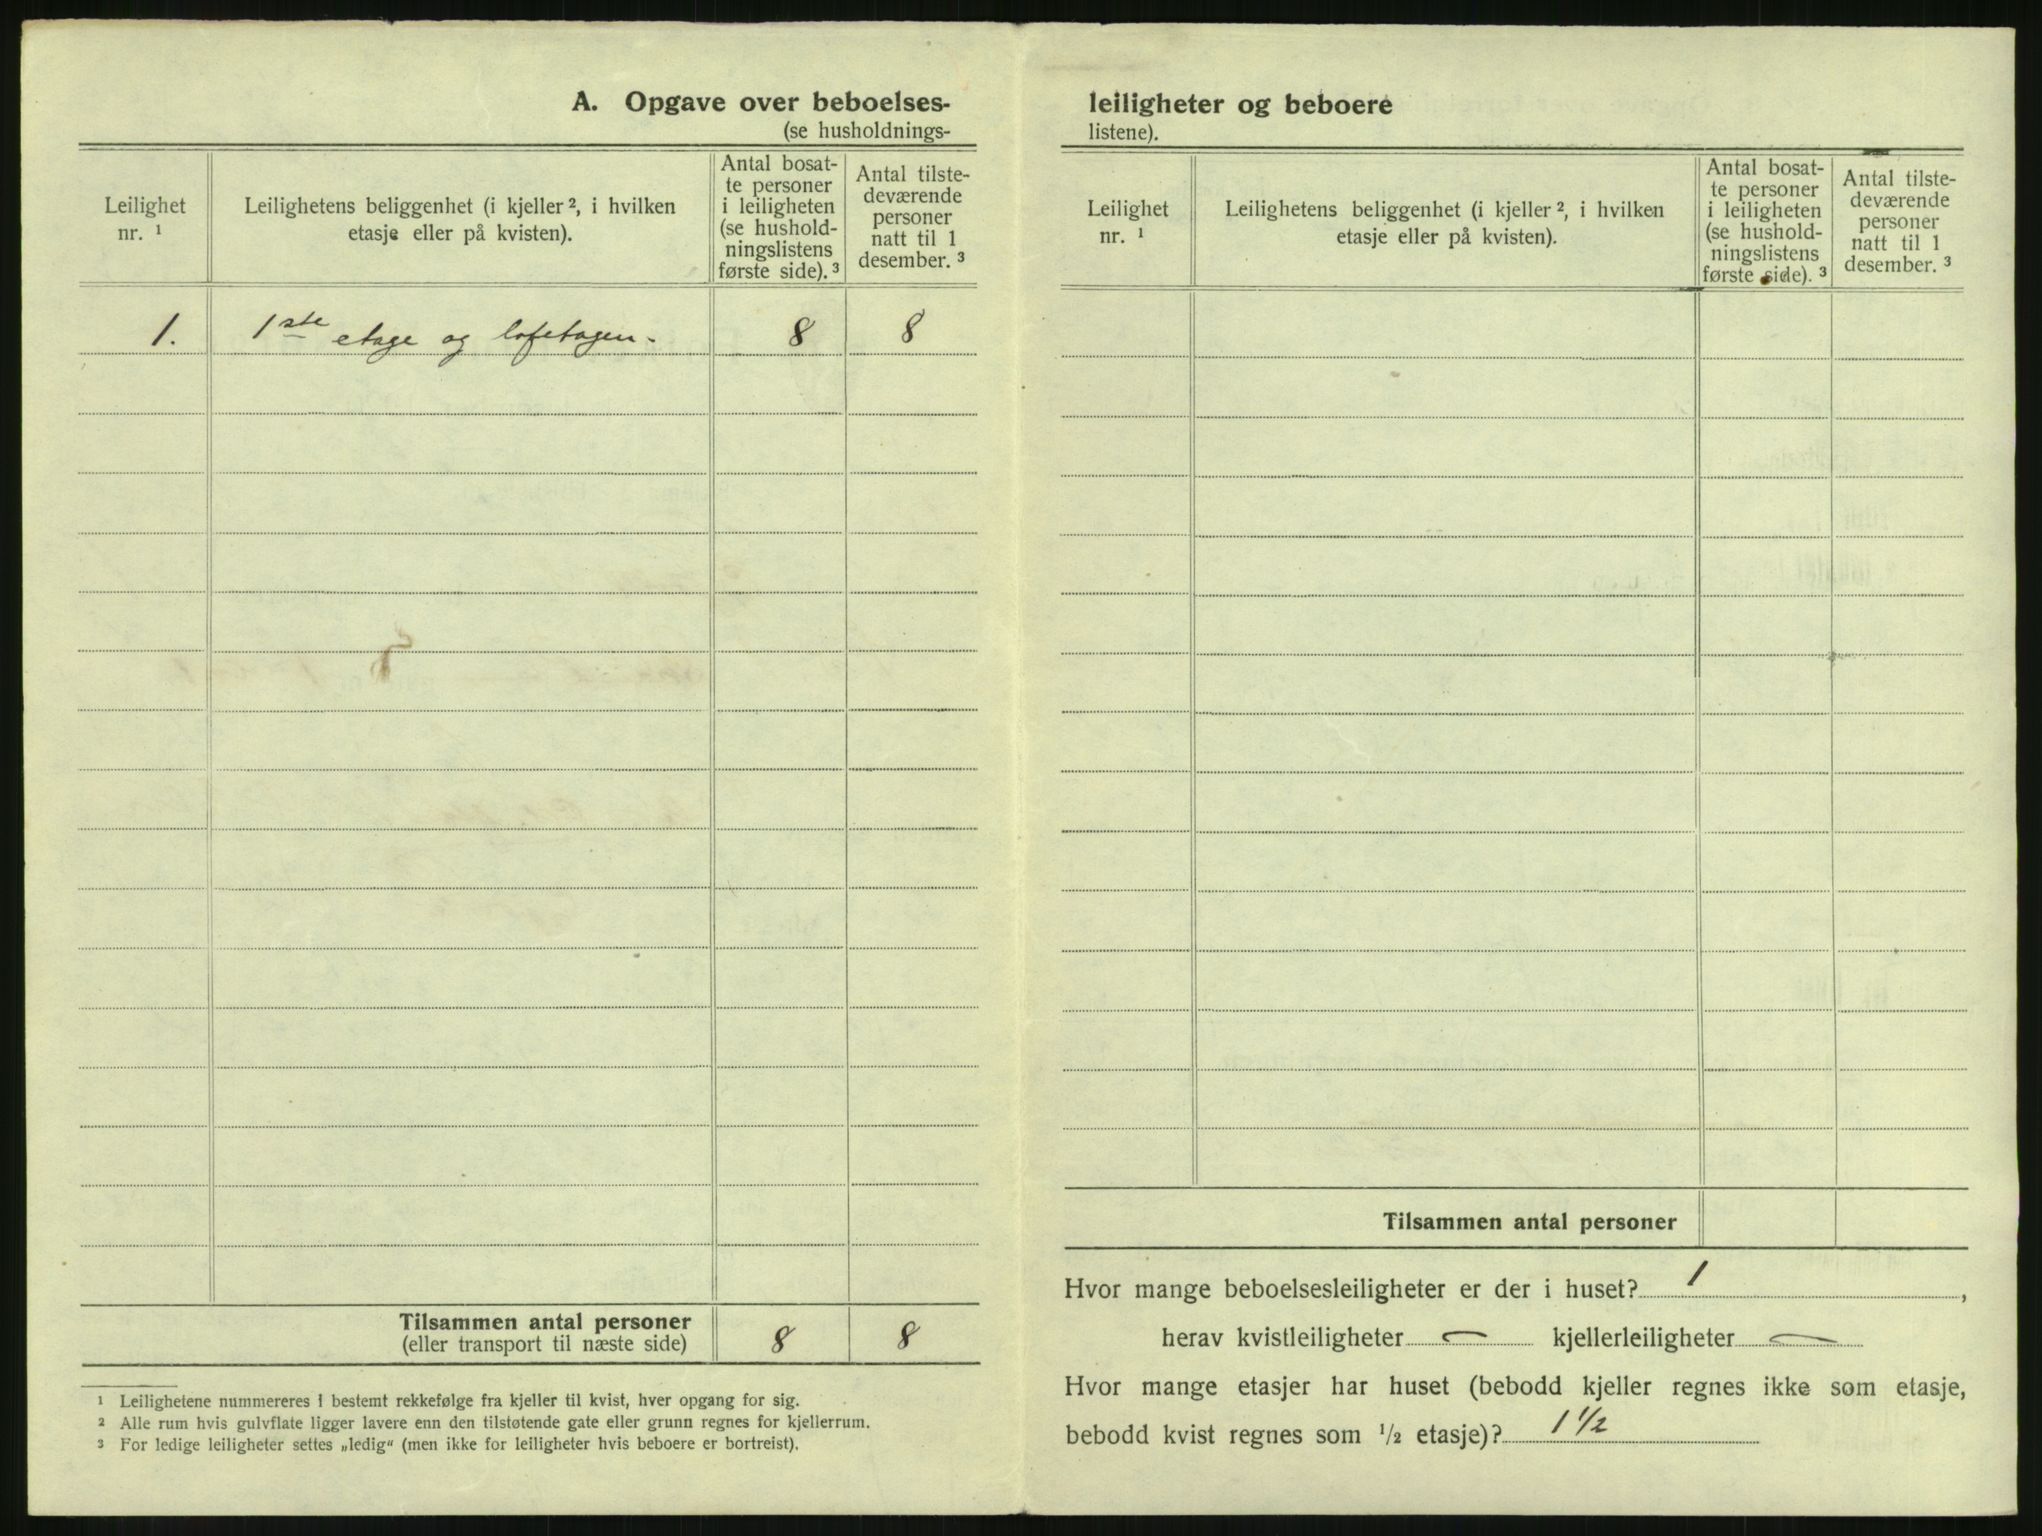 A. Opgave over beboelses-
(se husholdnings-
Leilighet nr. ¹
Leilighetens beliggenhet (i kjeller ², i hvilken etasje eller på kvisten).
Antal bosat-
te personer
i leiligheten
(se hushold-
ningslistens
første side). ³
Antal tilste-
deværende
personer
natt til 1
desember. ³
1. 1ste etage og loftetagen. 8 8
Tilsammen antal personer 8 8
(eller transport til næste side)
¹ Leilighetene nummereres i bestemt rekkefølge fra kjeller til kvist, hver opgang for sig.
² Alle rum hvis gulvflate ligger lavere enn den tilstøtende gate eller grunn regnes for kjellerrum.
³ For ledige leiligheter settes „ledig“ (men ikke for leiligheter hvis beboere er bortreist).
leiligheter og beboere
listene).
Leilighet nr. ¹
Leilighetens beliggenhet (i kjeller ², i hvilken etasje eller på kvisten).
Antal bosat-
te personer
i leiligheten
(se hushold-
ningslistens
første side). ³
Antal tilste-
deværende
personer
natt til 1
desember. ³
Tilsammen antal personer
Hvor mange beboelsesleiligheter er der i huset? 1,
herav kvistleiligheter — kjellerleiligheter —
Hvor mange etasjer har huset (bebodd kjeller regnes ikke som etasje,
bebodd kvist regnes som ½ etasje)? 1 ½